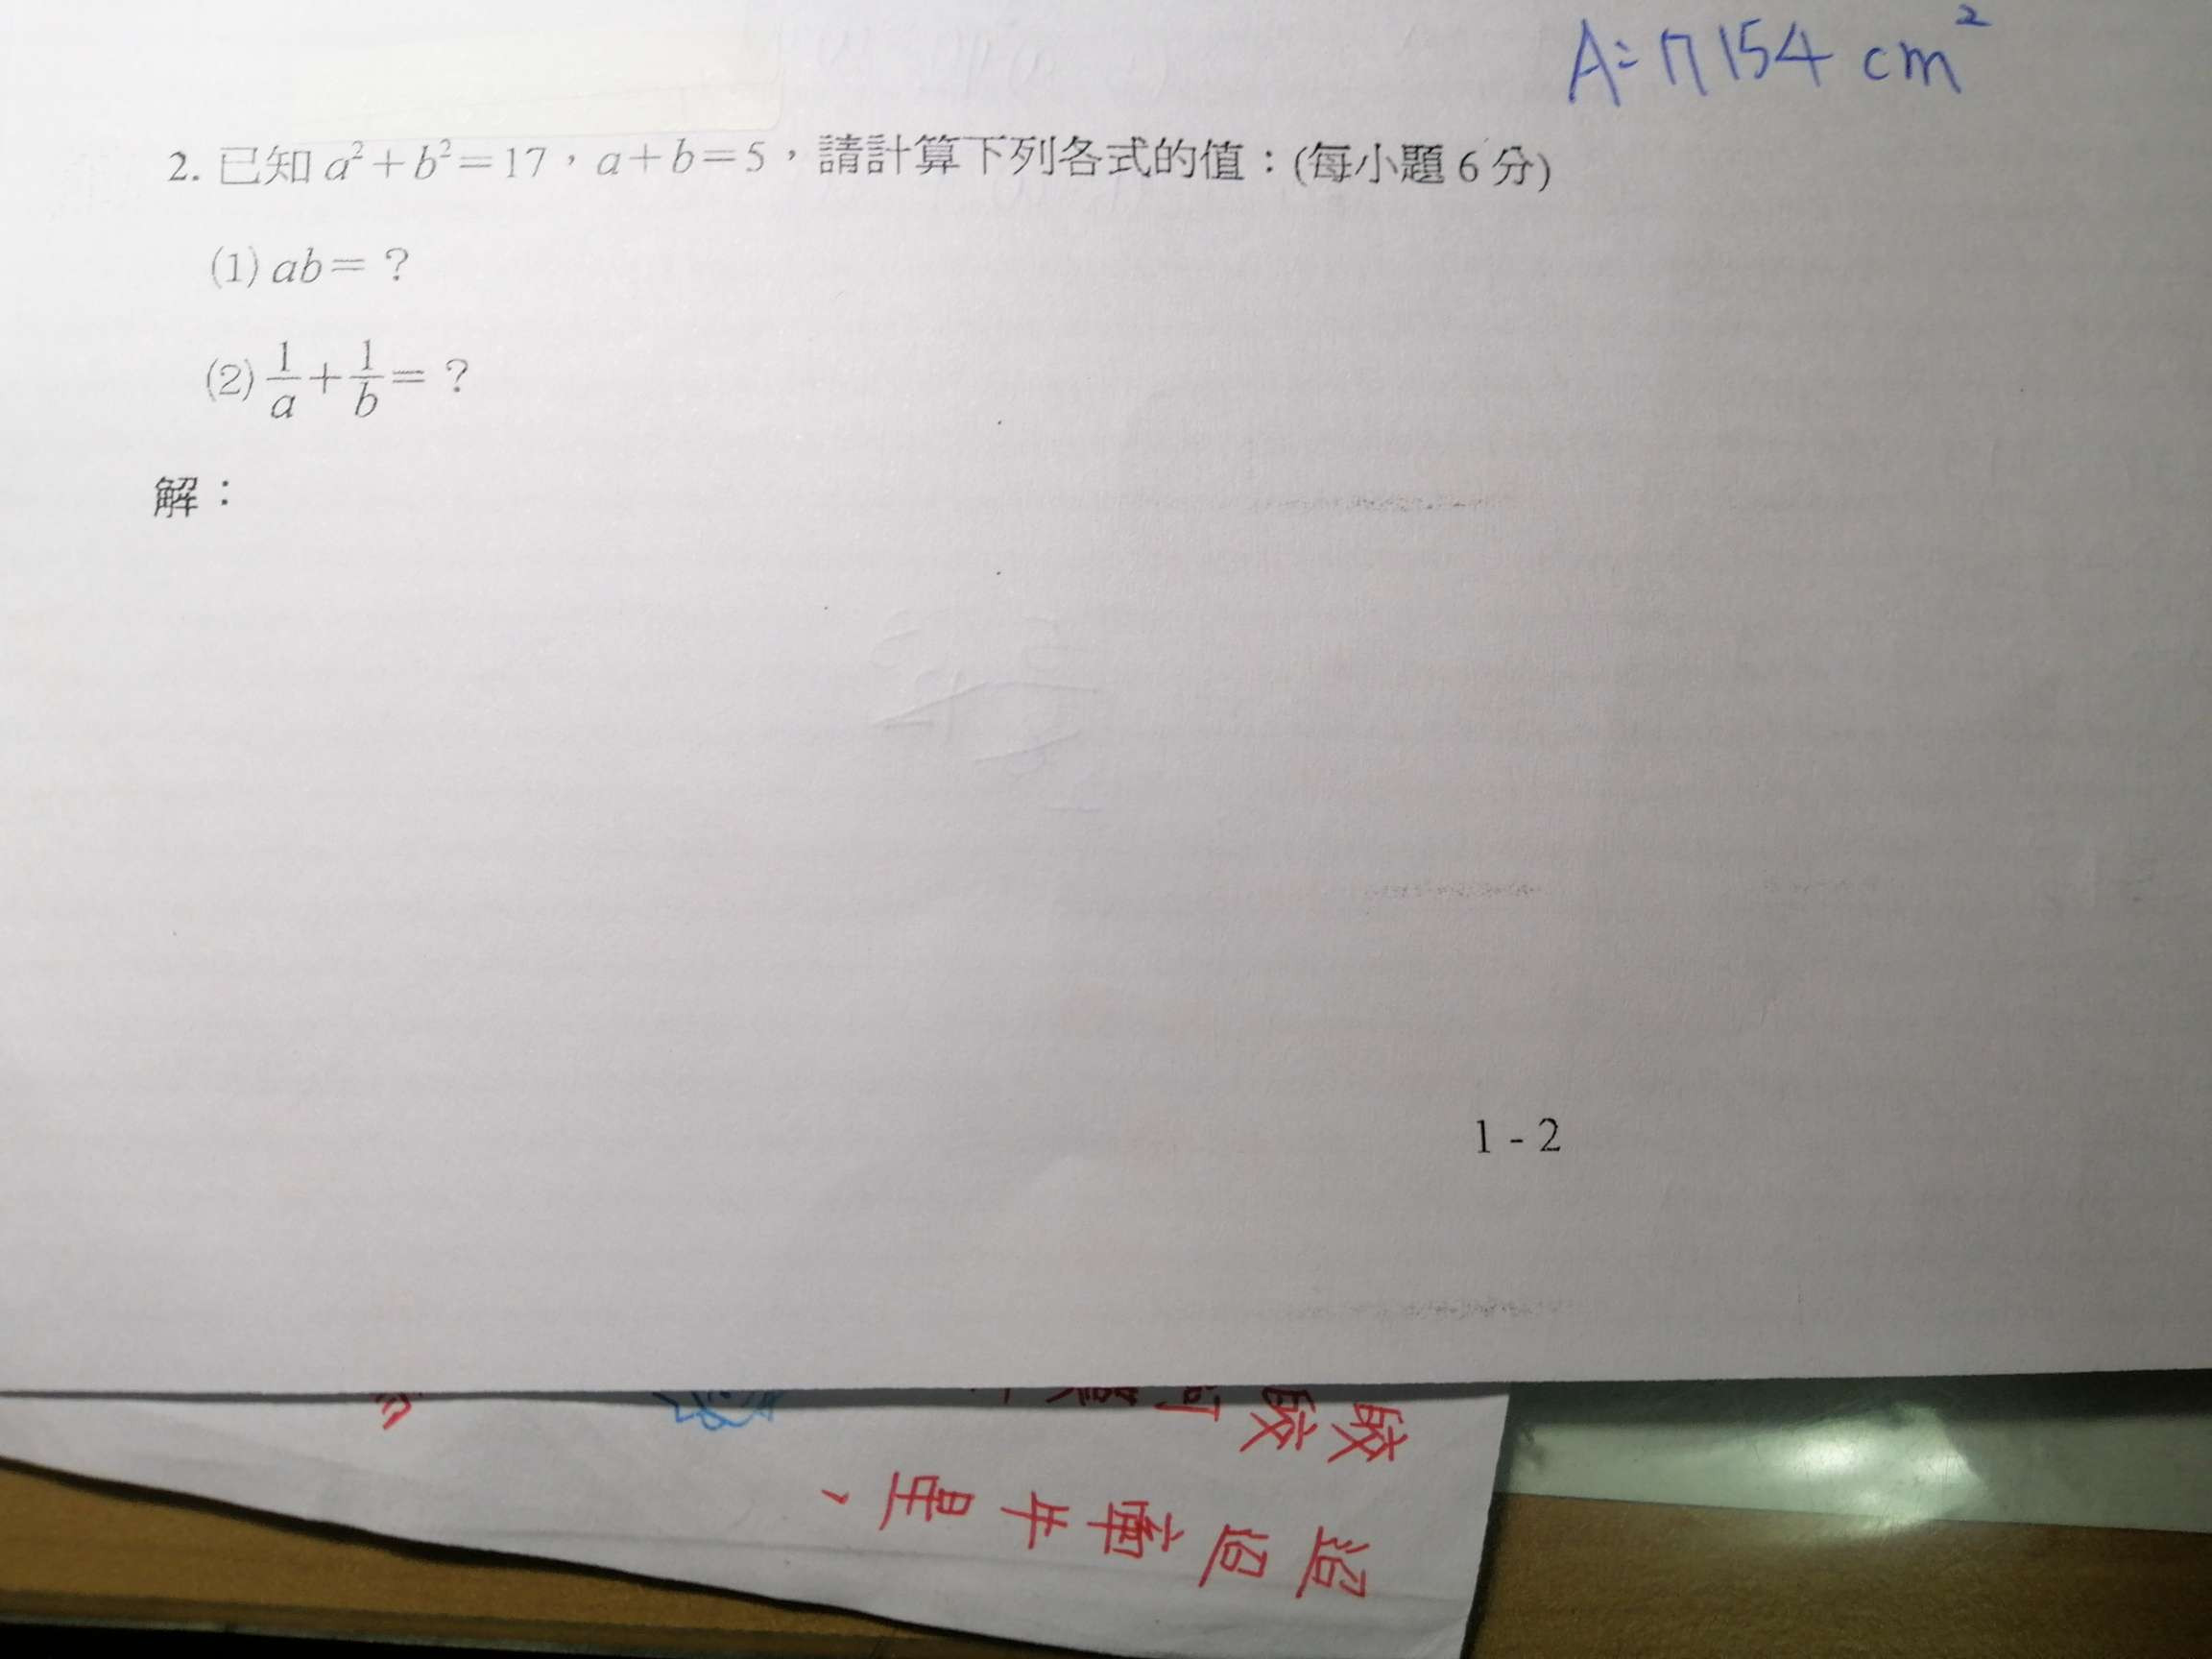 A:17154 cm²
2. 已知 a²+b²=17，a+b=5，請計算下列各式的值：(每小題 6 分)
(1) ab=？
(2) 1/a + 1/b =？
解：
1 - 2
皎皎河漢
迢迢牽牛星，